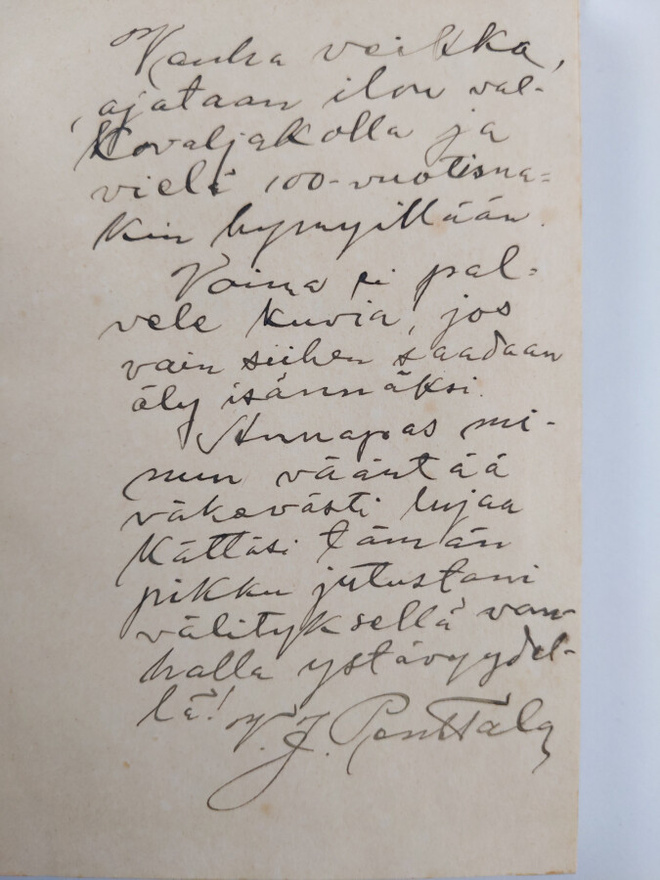 Vanha veikko,
ajataan ilon val-
kovaljakolla ja
vielä 100-vuotisna=
kin hymyillään.
Voima ei pal=
vele kuvia, jos
vain siihen saadaan
äly isännäksi.
Annapas mi-
nun vääntää
väkevästi lujaa
kättäsi tämän
pikku jutustani
välityksellä van
halla ystävyydel-
lä!
J. Penttala